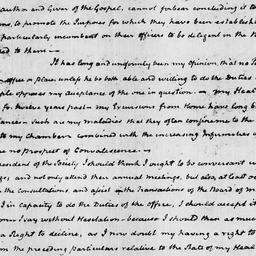 author and Giver of the Gospel, cannot forbear concluding it to
ons, to promote the Purposes for which they have been establish
particularly incumbent on their officers to be diligent in the
ed to them—
It has long and uniformly been my opinion, that no
office or place unless he be both able and willing to do the Duties
ple oppose my acceptance of the one in question.— my Heal
for twelve years past— my Excursions from Home have long b
tances— Such are my maladies that they often confine me to the
to my chambers combined with the increasing Infirmities
no prospect of Convalescence.—
resident of the Society, I should think I ought to be conversant
gs; and not only attend their annual meetings, but also, at least oc
the consultations and assist in the Transactions of the Board of m
I in capacity to do the Duties of the office, I should accept it
ions I say without Hesitation— because I should then as much
a Right to decline, as I now doubt my having a right to
om the preceding particulars relative to the State of my Heal